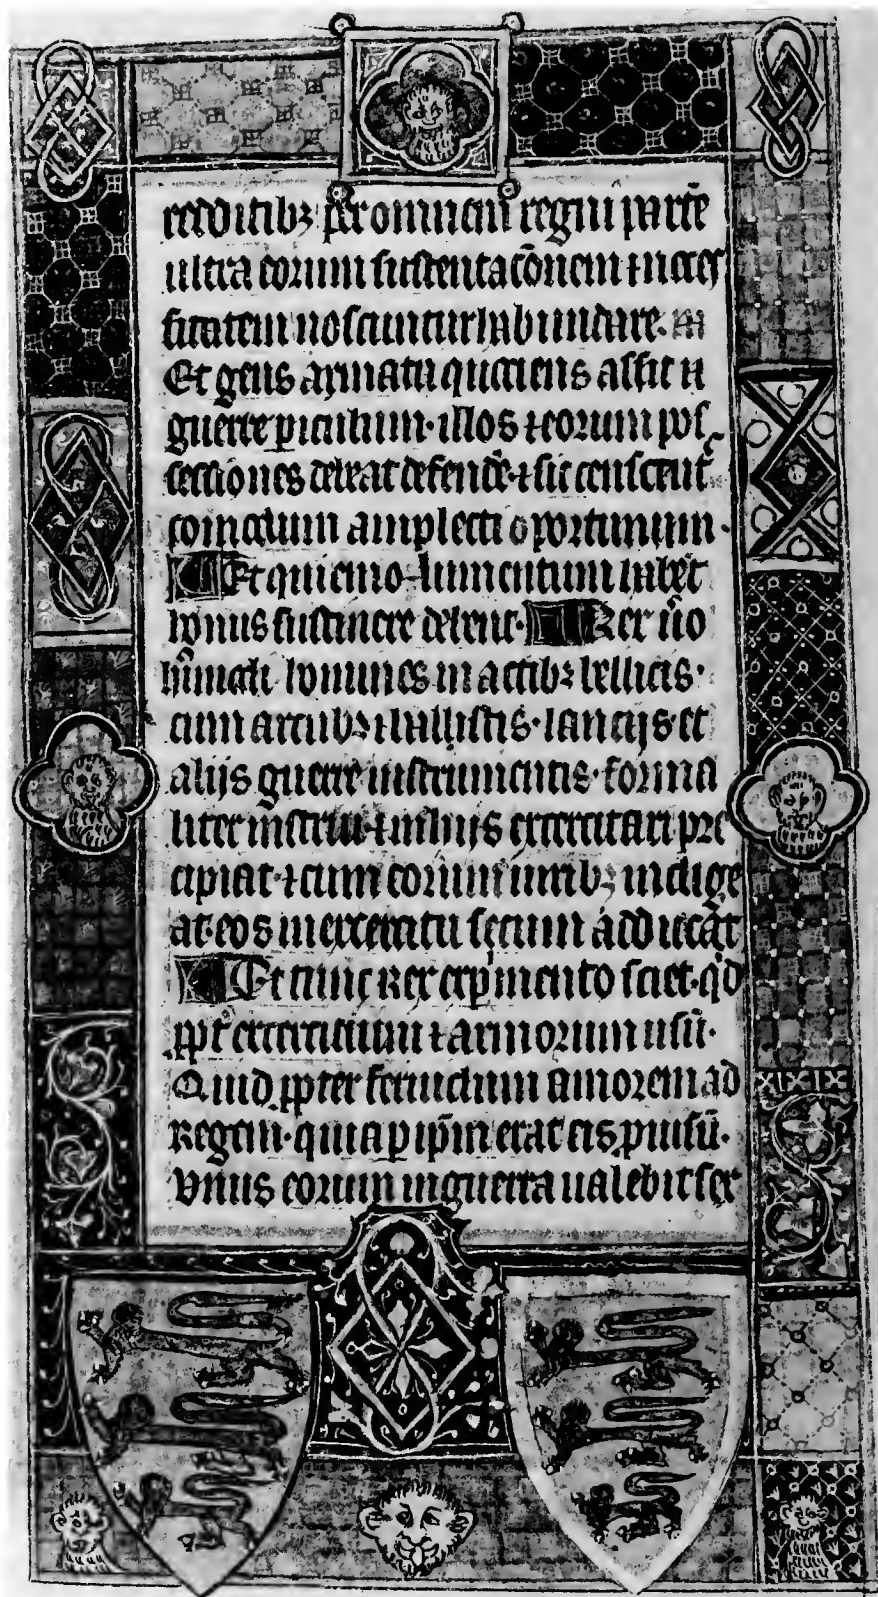 redditibꝫ per omnem regni parte᷃
ultra eorum sustentac̃onem ⁊ neces
sitatem noscuntur habundare.
Et gens armatu quociens assit
guerre p̱iculum · illos ⁊ eorum pos
sessiones debeat defendẽ ⁊ sic censeut᷑
comodum amplecti oportunum ·
Et qui emolumentum habet
honus sustinere debent · Rex ũo
hm̃odi homines in actibꝫ bellicis ·
cum arcubꝫ ⁊ ballistis · lancijs et
alijs guerre instrumentis · forma
liter instrui · ⁊ in hijs exercitari pre
cipiat · ⁊ cum eorum uiribꝫ indige
at · eos in exercitu secum adducat
Et tunc Rex exp̱imento sciet · qd̃
ꝓpt̃ exercicium ⁊ armorum usũ ·
Quid ꝓpter feruidum amorem ad
Regem · quia p̱ ip̃m erat eis ꝓuisũ ·
Vnus eorum in guerra ualebit sex